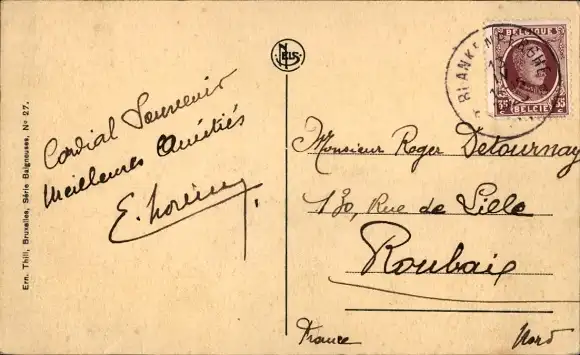 Ern. Thill, Bruxelles, Série Baigneuses, No 27.
Cordial Souvenir
Meilleures Amitiés
NELS
BLANKENBERGHE
BELGIQUE
35 c 35
BELGIË
Monsieur Roger Detournay
130, Rue de Lille
Roubaix
France Nord